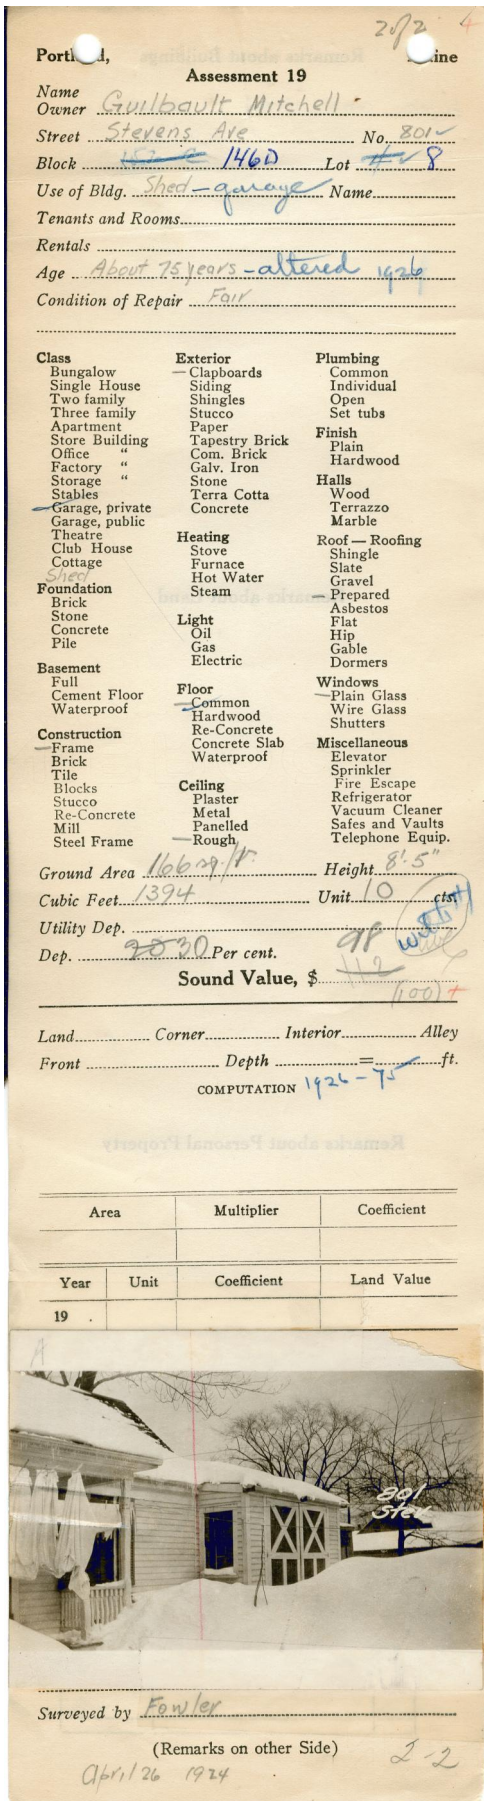 2 of 2 4
Portland, Maine
Assessment 19
Name
Owner Guilbault Mitchell
Street Stevens Ave No. 801
Block 146D Lot 8
Use of Bldg. Shed - garage Name
Tenants and Rooms
Rentals
Age About 75 years - altered 1926
Condition of Repair Fair
Class
Bungalow
Single House
Two family
Three family
Apartment
Store Building
Office "
Factory "
Storage "
Stables
Garage, private
Garage, public
Theatre
Club House
Cottage
Shed
Foundation
Brick
Stone
Concrete
Pile
Basement
Full
Cement Floor
Waterproof
Construction
Frame
Brick
Tile
Blocks
Stucco
Re-Concrete
Mill
Steel Frame
Exterior
Clapboards
Siding
Shingles
Stucco
Paper
Tapestry Brick
Com. Brick
Galv. Iron
Stone
Terra Cotta
Concrete
Heating
Stove
Furnace
Hot Water
Steam
Light
Oil
Gas
Electric
Floor
Common
Hardwood
Re-Concrete
Concrete Slab
Waterproof
Ceiling
Plaster
Metal
Panelled
Rough
Plumbing
Common
Individual
Open
Set tubs
Finish
Plain
Hardwood
Halls
Wood
Terrazzo
Marble
Roof — Roofing
Shingle
Slate
Gravel
Prepared
Asbestos
Flat
Hip
Gable
Dormers
Windows
Plain Glass
Wire Glass
Shutters
Miscellaneous
Elevator
Sprinkler
Fire Escape
Refrigerator
Vacuum Cleaner
Safes and Vaults
Telephone Equip.
Ground Area 166 sq. ft. Height 8'-5"
Cubic Feet 1394 Unit 10 cts.
Utility Dep.
Dep. 20 30 Per cent. 98
Sound Value, $ 112
(100) +
Land Corner Interior Alley
Front Depth = ft.
COMPUTATION 1926 - 75
Area Multiplier Coefficient
Year Unit Coefficient Land Value
19 .
A
801
Stev
Surveyed by Fowler
(Remarks on other Side)
April 26 1924
2-2